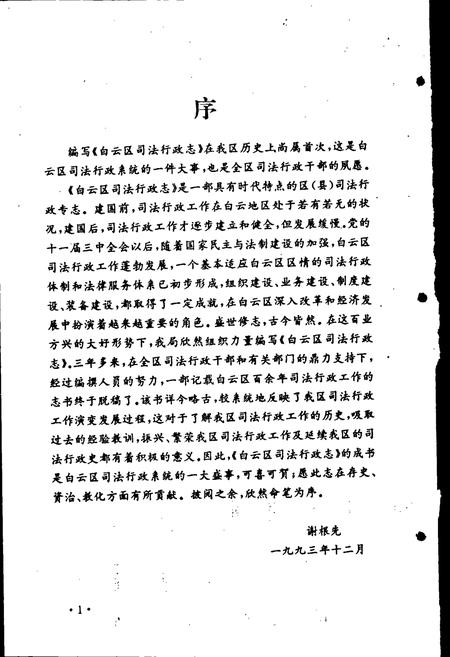 序
编写《白云区司法行政志》在我区历史上尚属首次，这是白
云区司法行政系统的一件大事，也是全区司法行政干部的夙愿。
《白云区司法行政志》是一部具有时代特点的区（县）司法行
政专志。建国前，司法行政工作在白云地区处于若有若无的状
况，建国后，司法行政工作才逐步建立和健全，但发展缓慢。党的
十一届三中全会以后，随着国家民主与法制建设的加强，白云区
司法行政工作蓬勃发展，一个基本适应白云区区情的司法行政
体制和法律服务体系已初步形成，组织建设、业务建设、制度建
设、装备建设，都取得了一定成就，在白云区深入改革和经济发
展中扮演着越来越重要的角色。盛世修志，古今皆然。在这百业
方兴的大好形势下，我局欣然组织力量编写《白云区司法行政
志》。三年多来，在全区司法行政干部和有关部门的鼎力支持下，
经过编撰人员的努力，一部记载白云区百余年司法行政工作的
志书终于脱稿了。该书详今略古，较系统地反映了我区司法行政
工作演变发展过程，这对于了解我区司法行政工作的历史，吸取
过去的经验教训，振兴、繁荣我区司法行政工作及延续我区的司
法行政史都有着积极的意义。因此，《白云区司法行政志》的成书
是白云区司法行政系统的一大盛事，可喜可贺；愿此志在存史、
资治、教化方面有所贡献。披阅之余，欣然命笔为序。
谢根先
一九九三年十二月
·1·